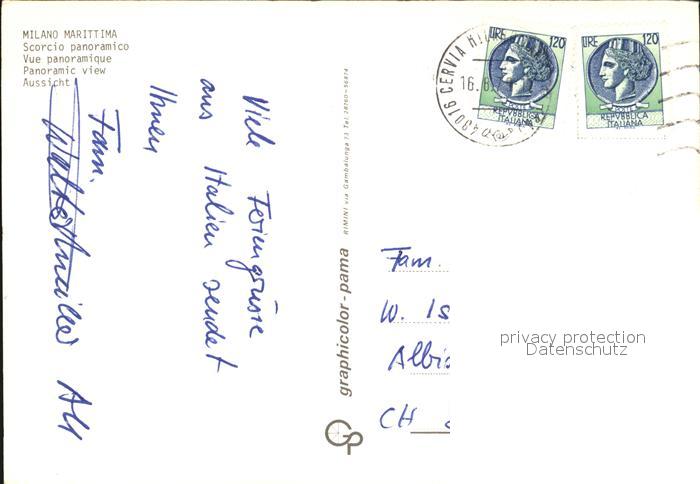 MILANO MARITTIMA
Scorcio panoramico
Vue panoramique
Panoramic view
Aussicht
Viele Feriengrüsse
aus Italien sendet
Ihnen
Fam.
graphicolor - pama
RIMINI via Gambalunga 13 Tel.
GP
LIRE 120
POSTE
REPVBBLICA
ITALIANA
LIRE 120
POSTE
REPVBBLICA
ITALIANA
49016 CERVIA MI
16.
Fam.
W. Is
Albis
CH
privacy protection
Datenschutz